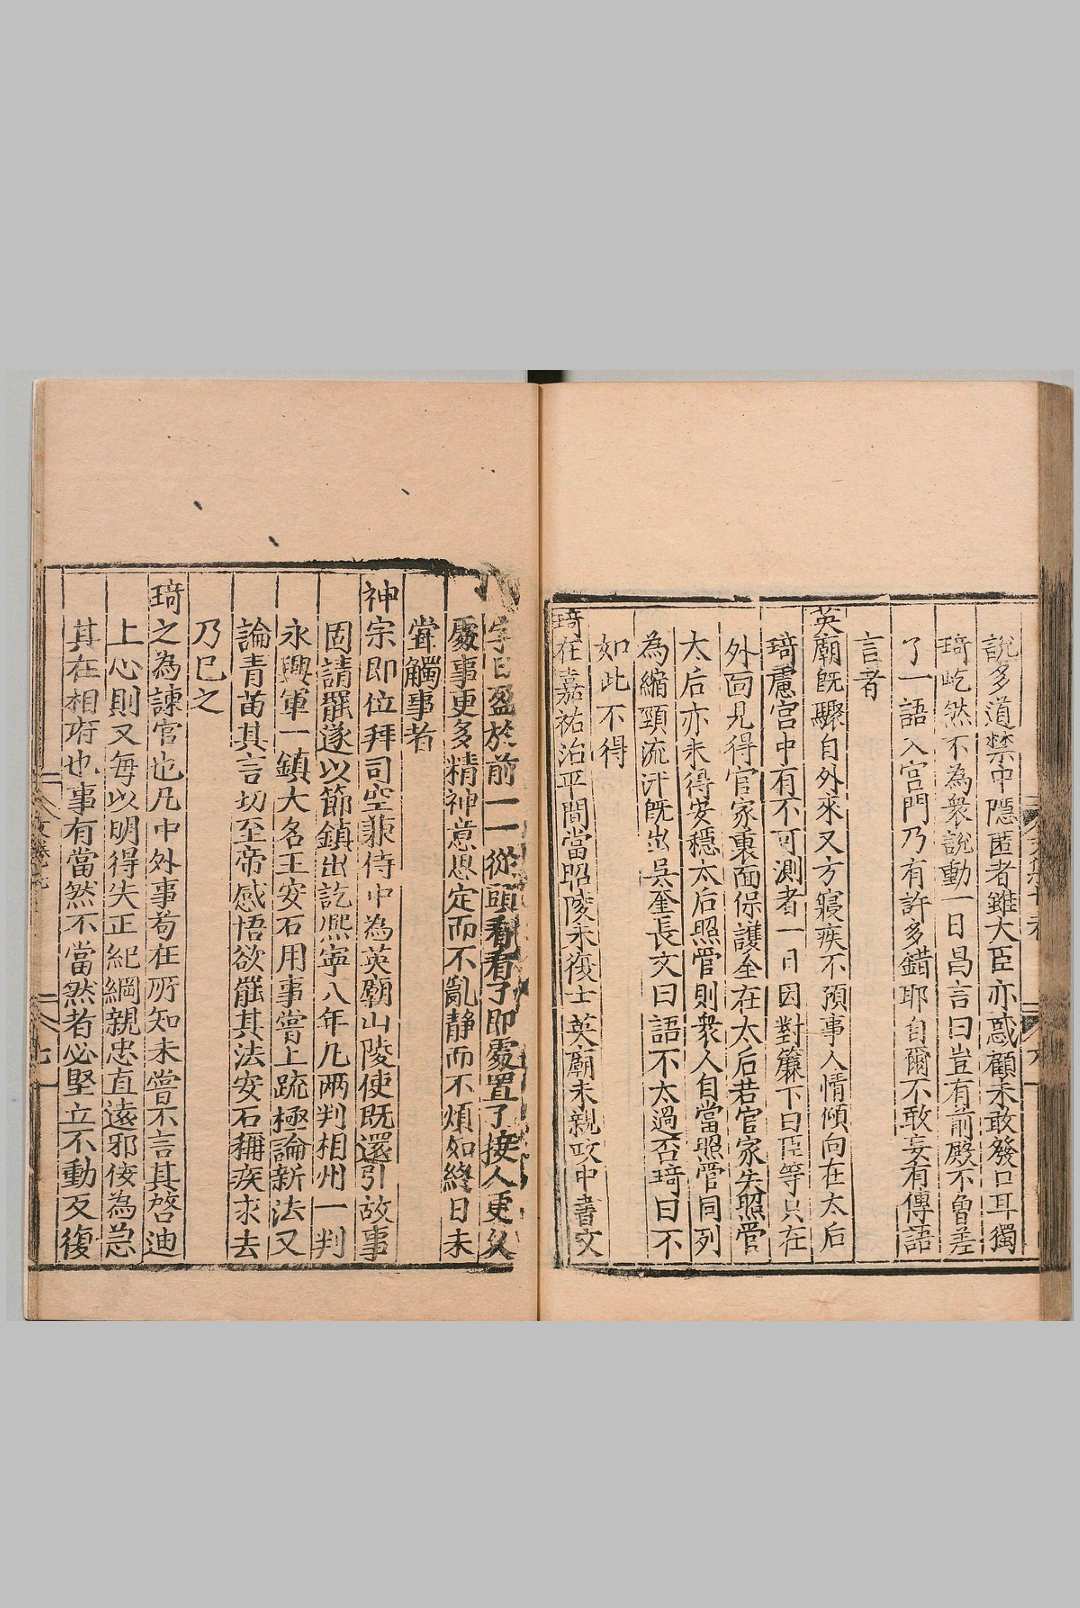 說多道禁中隱匿者雖大臣亦惑顧未敢發口耳獨
琦屹然不為衆說動一日昌言曰豈有前殿不曾差
了一語入宮門乃有許多錯耶自爾不敢妄有傳語
言者
英廟旣驟自外來又方寢疾不預事人情傾向在太后
琦慮宮中有不可測者一日因對簾下曰臣等只在
外面見得官家裏面保護全在太后若官家失照管
太后亦未得安穩太后照管則衆人自當照管同列
為縮頸流汗旣出吳奎長文曰語不太過否琦曰不
如此不得
琦在嘉祐治平間當昭陵未復土英廟未親政中書文
字日盈於前一一從頭看看了即處置了接人更久
處事更多精神意思定而不亂靜而不煩如終日未
甞觸事者
神宗即位拜司空兼侍中為英廟山陵使既還引故事
固請罷遂以節鎮出訖熙寧八年凡兩判相州一判
永興軍一鎮大名王安石用事嘗上疏極論新法又
論青苗其言切至帝感悟欲罷其法安石稱疾求去
乃已之
琦之為諫官也凡中外事苟在所知未嘗不言其啓迪
上心則又每以明得失正紀綱親忠直遠邪佞為急
其在相府也事有當然不當然者必堅立不動反復